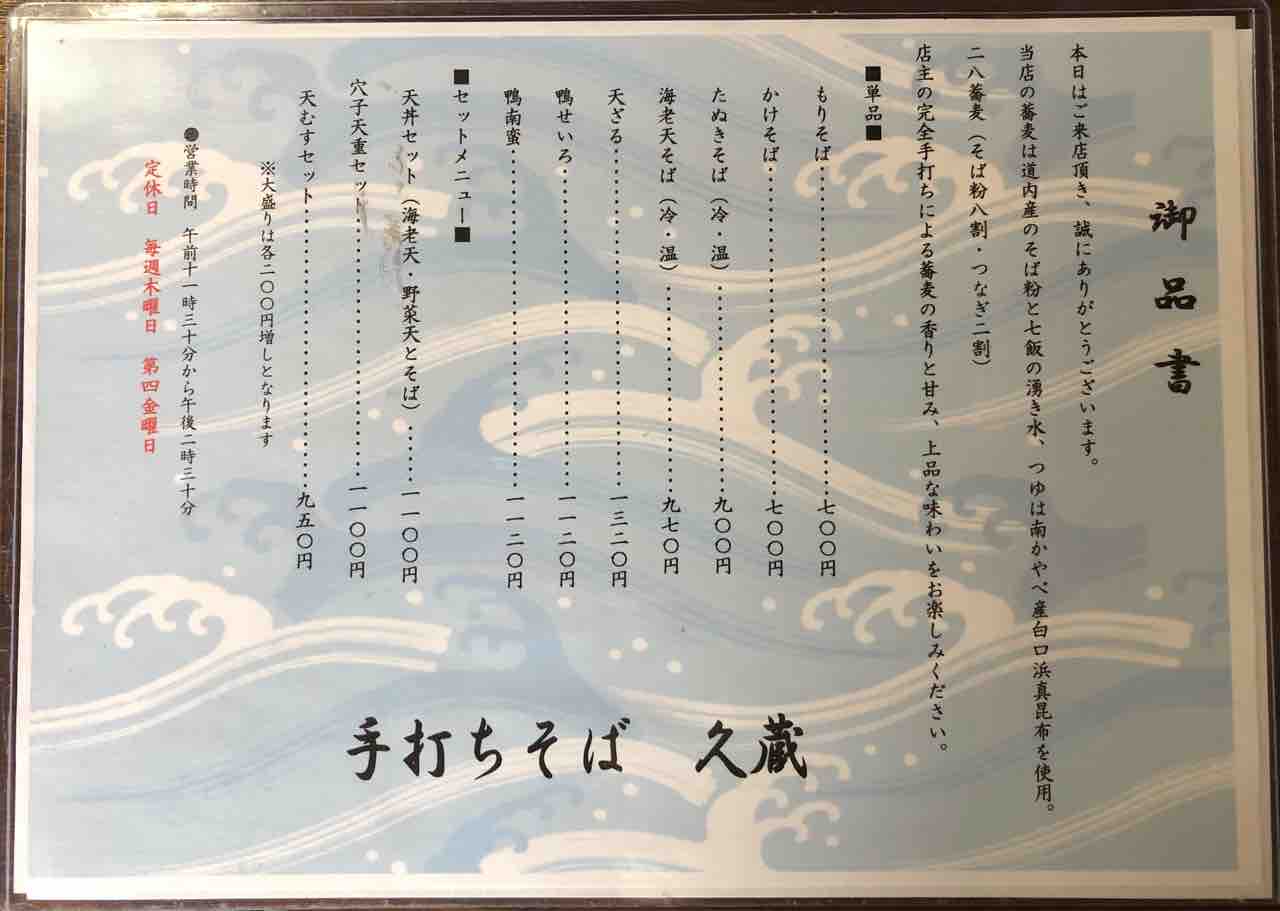 御品書
本日はご来店頂き、誠にありがとうございます。
当店の蕎麦は道内産のそば粉と七飯の湧き水、つゆは南かやべ産白口浜真昆布を使用。
二八蕎麦（そば粉八割・つなぎ二割）
店主の完全手打ちによる蕎麦の香りと甘み、上品な味わいをお楽しみください。
■単品■
もりそば……………………………七〇〇円
かけそば……………………………七〇〇円
たぬきそば（冷・温）………………九〇〇円
海老天そば（冷・温）………………九七〇円
天ざる………………………………一三二〇円
鴨せいろ……………………………一一二〇円
鴨南蛮………………………………一一二〇円
■セットメニュー■
天丼セット（海老天・野菜天とそば）……一一〇〇円
穴子天重セット……………………一一〇〇円
天むすセット………………………九五〇円
※大盛りは各二〇〇円増しとなります
●営業時間　午前十一時三十分から午後二時三十分
定休日　毎週木曜日　第四金曜日
手打ちそば　久蔵